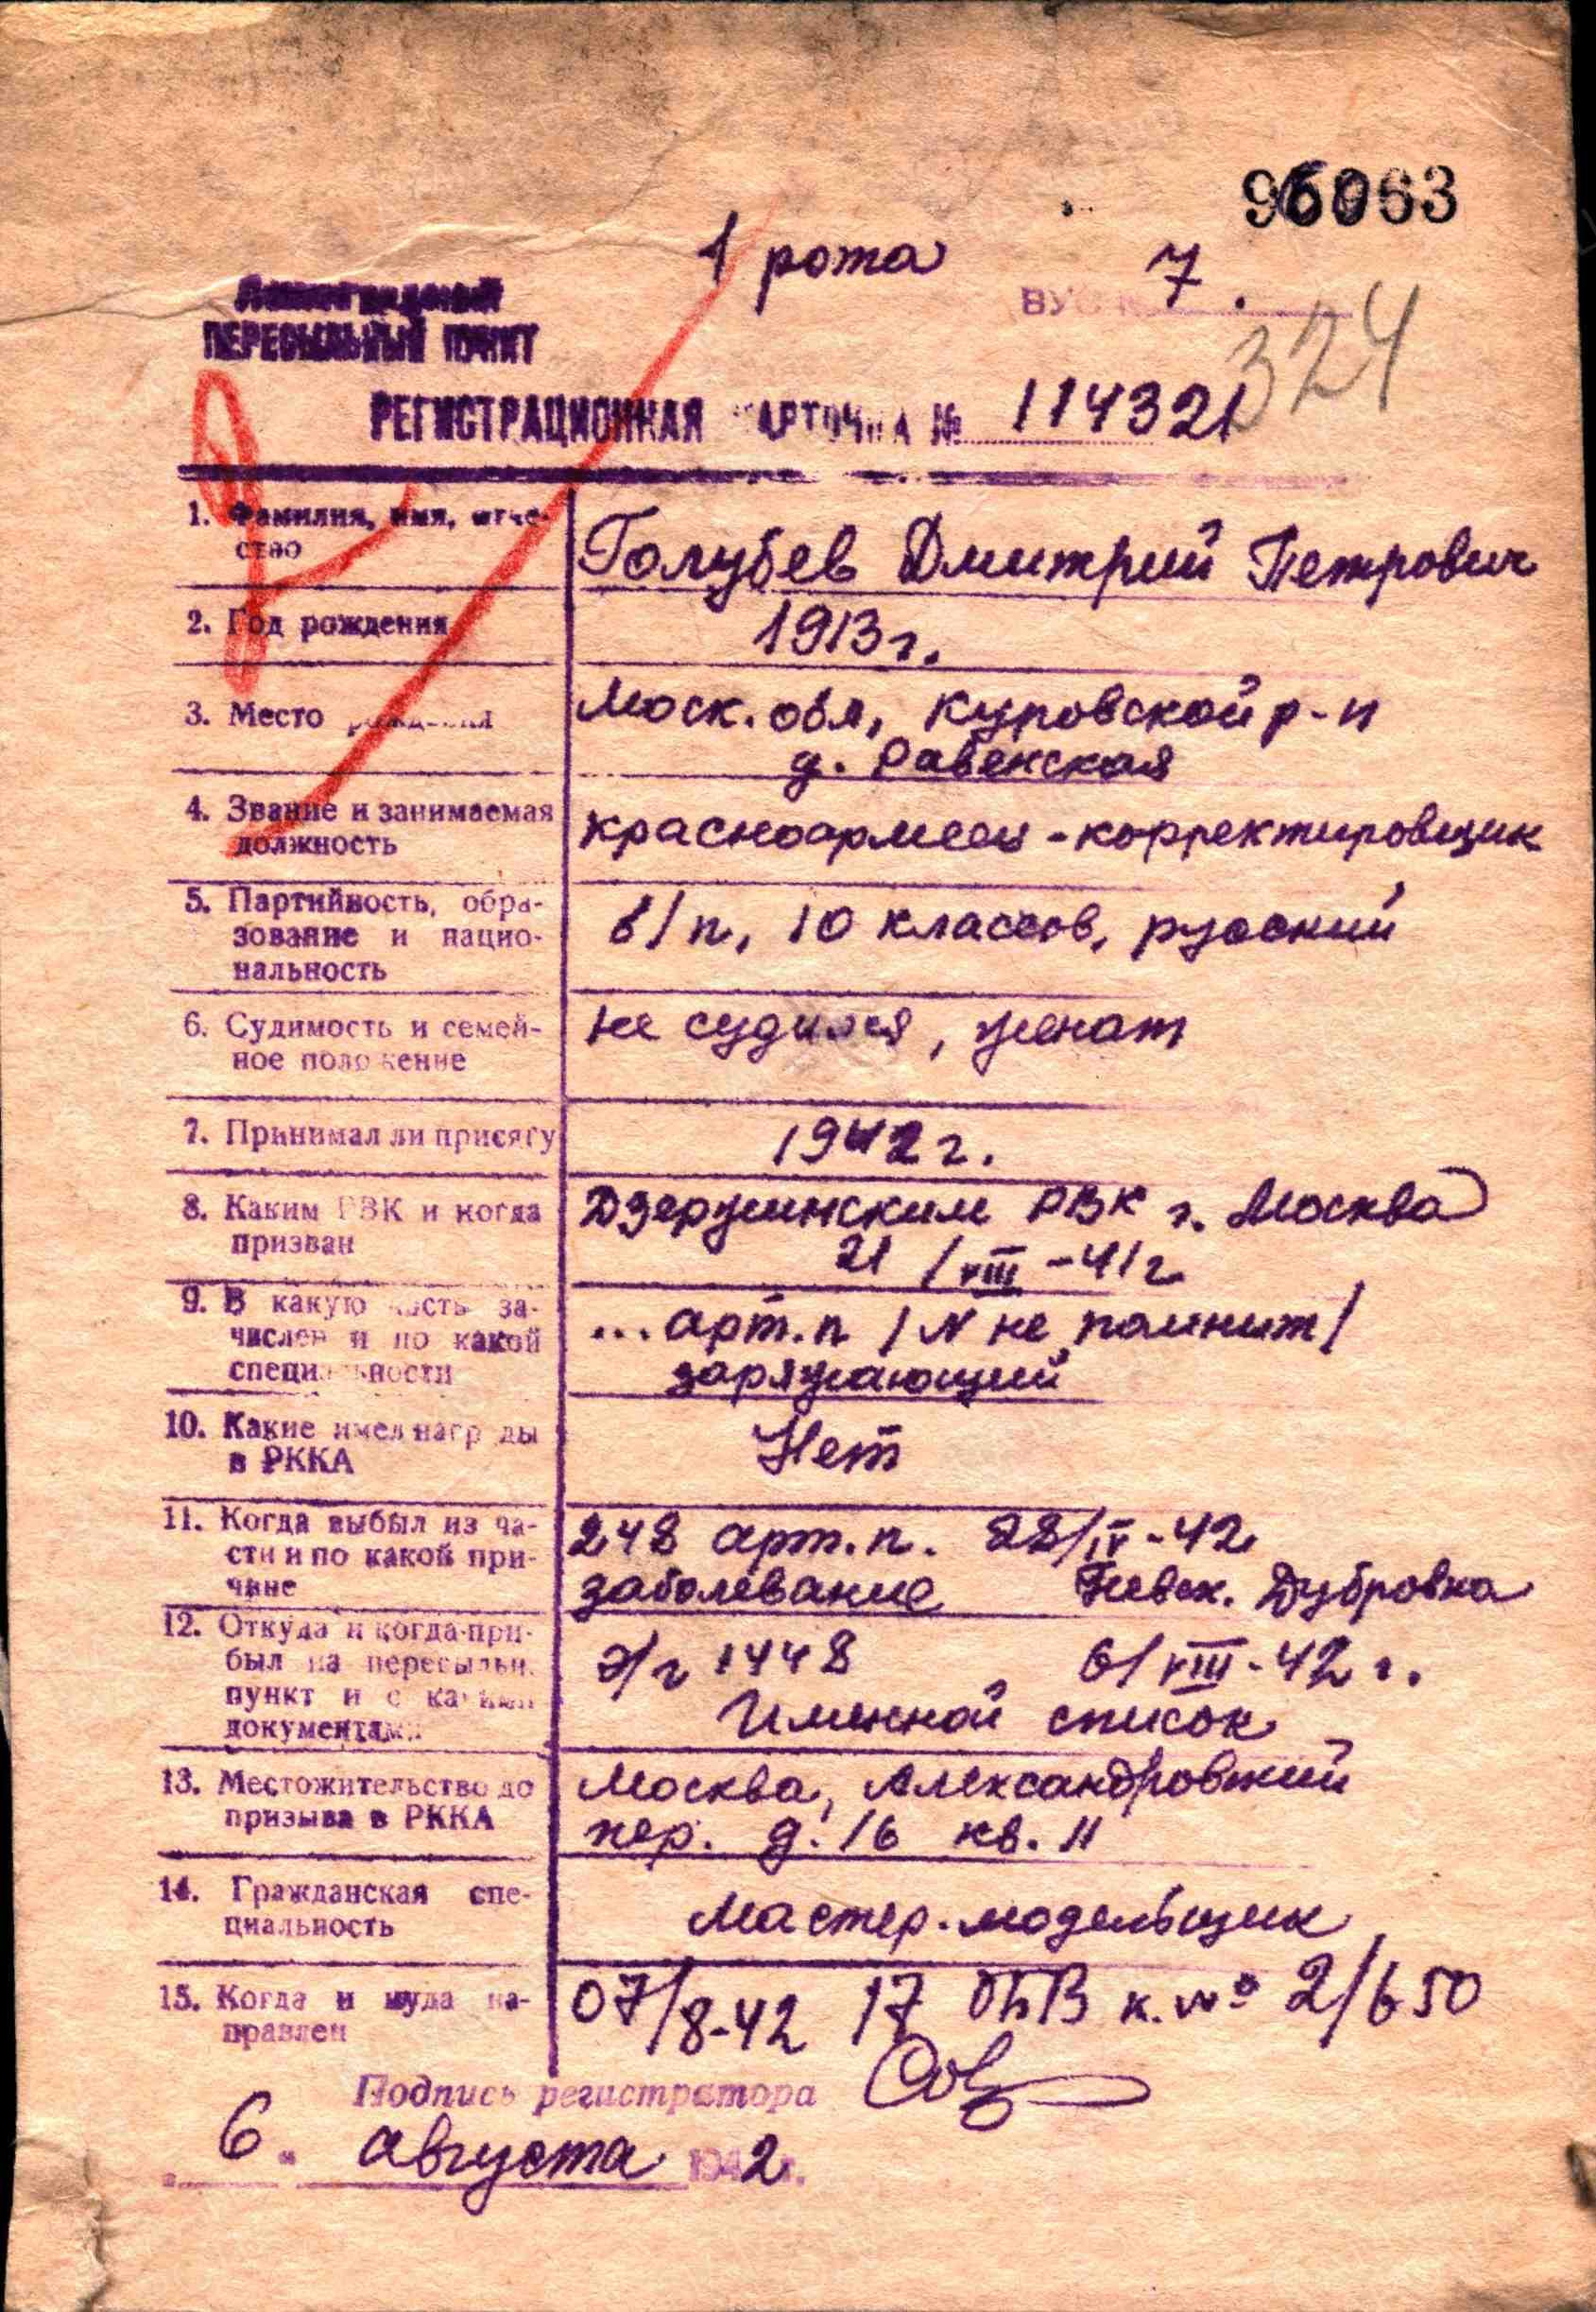 96063
1 рота 7.
ВУС
324
Ленинградский
ПЕРЕСЫЛЬНЫЙ ПУНКТ
РЕГИСТРАЦИОННАЯ КАРТОЧКА № 114321
1. Фамилия, имя, отче-
ство
Голубев Дмитрий Петрович
2. Год рождения
1913 г.
3. Место рождения
Моск. обл, Куровской р-н
д. Равенская
4. Звание и занимаемая
должность
красноармеец-корректировщик
5. Партийность, обра-
зование и нацио-
нальность
б/п, 10 классов, русский
6. Судимость и семей-
ное положение
не судился, женат
7. Принимал ли присягу
1942 г.
8. Каким РВК и когда
призван
Дзержинским РВК г. Москва
21/VIII-41 г
9. В какую часть за-
числен и по какой
специальности
... арт. п /N не помнит/
заряжающий
10. Какие имел награды
в РККА
Нет
11. Когда выбыл из ча-
сти и по какой при-
чине
248 арт. п. 28/IV-42
заболевание Невск. Дубровка
12. Откуда и когда при-
был на пересыльн.
пункт и с какими
документами
э/г 1448 6/VIII-42 г.
Именной список
13. Местожительство до
призыва в РККА
Москва, Александровский
пер. д. 16 кв. 11
14. Гражданская спе-
циальность
Мастер-модельщик
15. Когда и куда на-
правлен
07/8-42 17 ОБВ к. № 2/650
Подпись регистратора
6 " августа 1942 г.